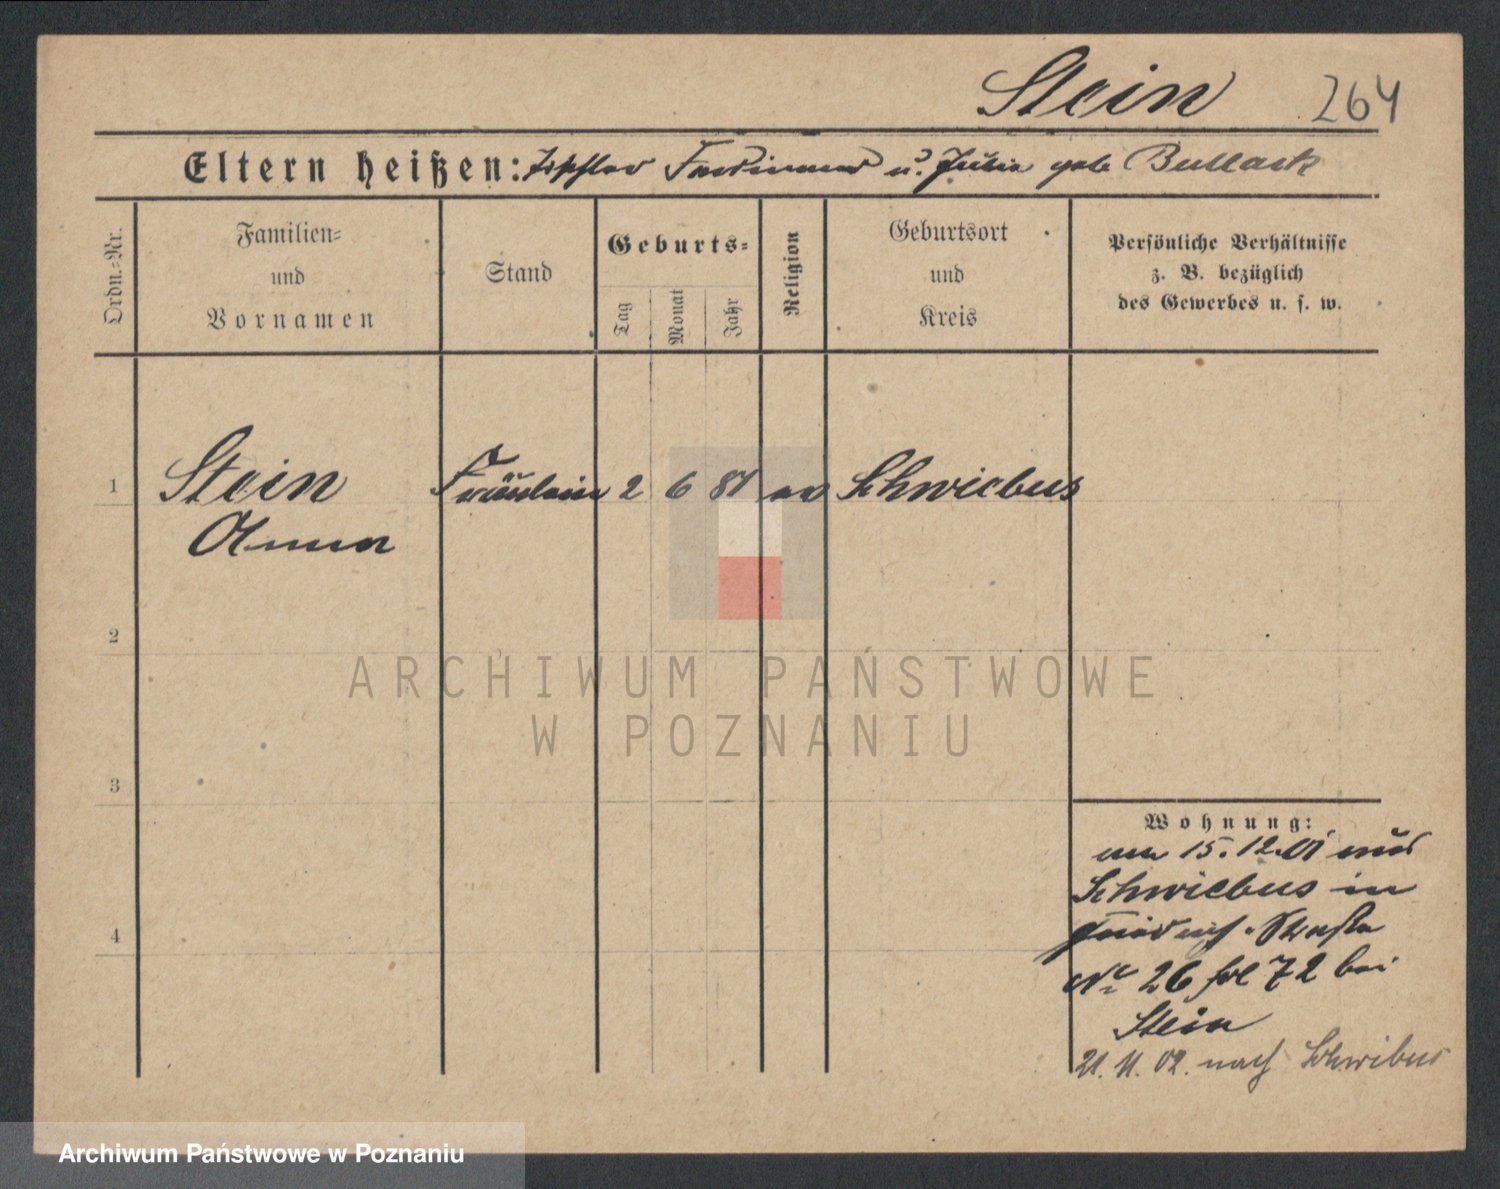 Stein 264
Eltern heißen: Tischler Ferdinand u. Julie geb Bullack
Ordn.=Nr.
Familien=
und
Vornamen
Stand
Geburts=
Tag
Monat
Jahr
Religion
Geburtsort
und
Kreis
Persönliche Verhältnisse
z. B. bezüglich
des Gewerbes u. s. w.
1
Stein Fräulein 2 6 81 ev Schwiebus
Anna
2
3
4
Wohnung:
am 15.12.01 aus
Schwiebus in
Straße
No 26 bei
Stein
21. 11. 02. nach Schwibus
ARCHIWUM PAŃSTWOWE
W POZNANIU
Archiwum Państwowe w Poznaniu